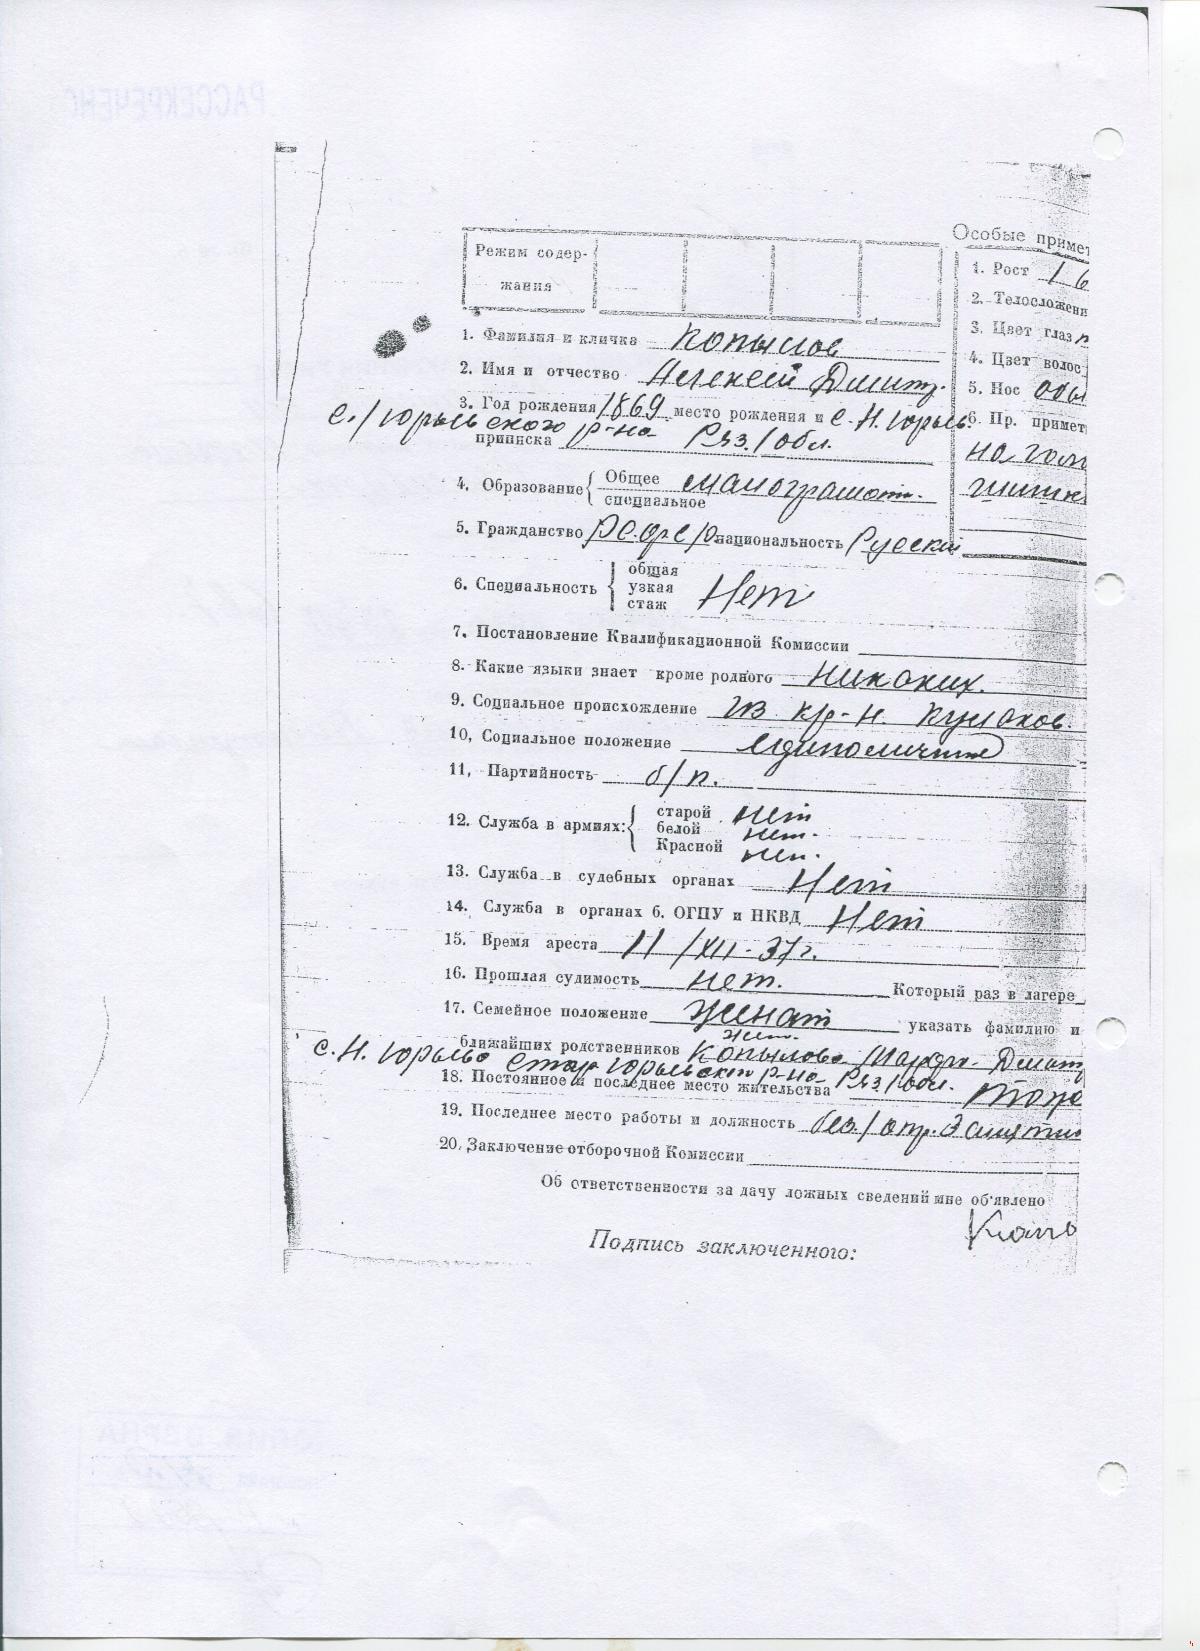 РАССЕКРЕЧЕНО
Режим содер-
жания
Особые примет
1. Рост 1 6
2. Телосложени
3. Цвет глаз
4. Цвет волос
5. Нос обы
6. Пр. примет
на гол
шишк
1. Фамилия и кличка Копылов
2. Имя и отчество Алексей Дмитр.
3. Год рождения 1869 место рождения и с. Н. Юрьь
с./Юрььского р-на Ряз./обл.
приписка
4. Образование { Общее малограмотн.
специальное
5. Гражданство РСФСР национальность Русский
6. Специальность { общая
узкая Нет
стаж
7. Постановление Квалификационной Комиссии
8. Какие языки знает кроме родного никаких.
9. Социальное происхождение из кр-н. кулаков.
10, Социальное положение единоличник
11, Партийность б/п.
12. Служба в армиях: { старой нет
белой нет.
Красной нет.
13. Служба в судебных органах Нет
14. Служба в органах б. ОГПУ и НКВД Нет
15. Время ареста 11/XII-37г.
16. Прошлая судимость нет. Который раз в лагере
17. Семейное положение женат указать фамилию и
ближайших родственников Копылова Марфа Дмитр
с. Н. Юрьево Стар Юрьевский р-на Ряз/обл.
18. Постоянное и последнее место жительства
19. Последнее место работы и должность без/опр. Заняти
20. Заключение отборочной Комиссии
Об ответственности за дачу ложных сведений мне об'явлено
Копы
Подпись заключенного: